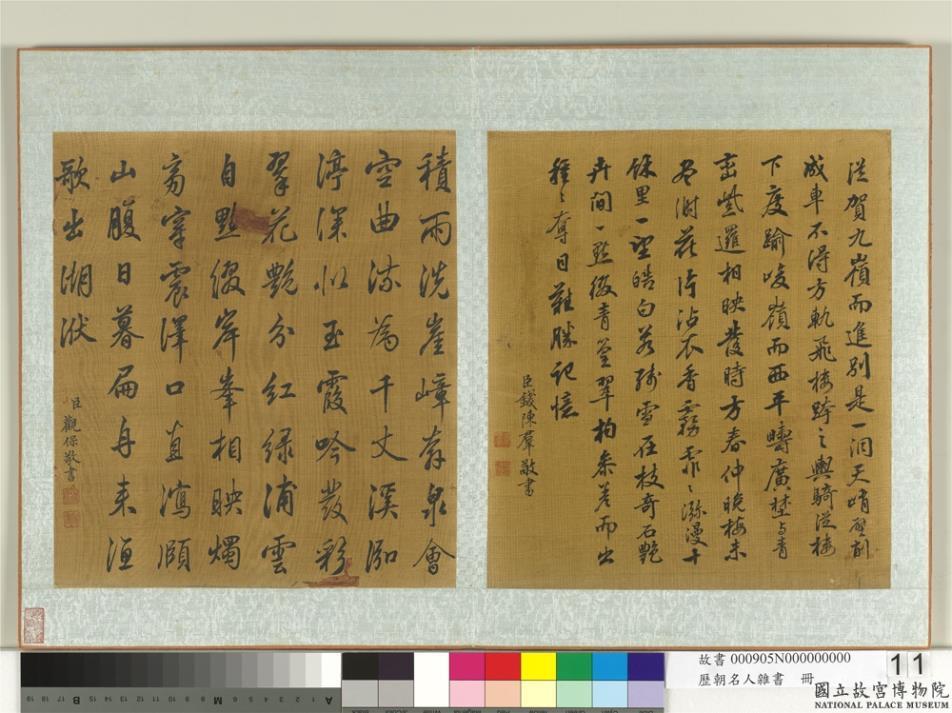 從賀九嶺而進別是一洞天峭壁削
成車不得方軌飛棧跨之輿騎從棧
下度踰峻嶺而西平疇廣埜与青
巒紫邏相映發時方春仲晚梅未
盡謝花片沾衣香霧霏〻瀰漫十
餘里一望皓白若殘雪在枝奇石艷
卉間一點綴青莎翠柏參差而出
種〻奪目難勝記憶
臣錢陳羣敬書
積雨洗崖嶂奔泉會
空曲流為千丈溪泓
渟深似玉霞吟發彩
翠花艷分紅綠浦雲
自點綴岸峯相映燭
窮穿震澤口直瀉
山腹日暮扁舟來
歌出湖洑
臣觀保敬書
故書 000905N000000000
歷朝名人雜書 冊
11
國立故宮博物院
NATIONAL PALACE MUSEUM